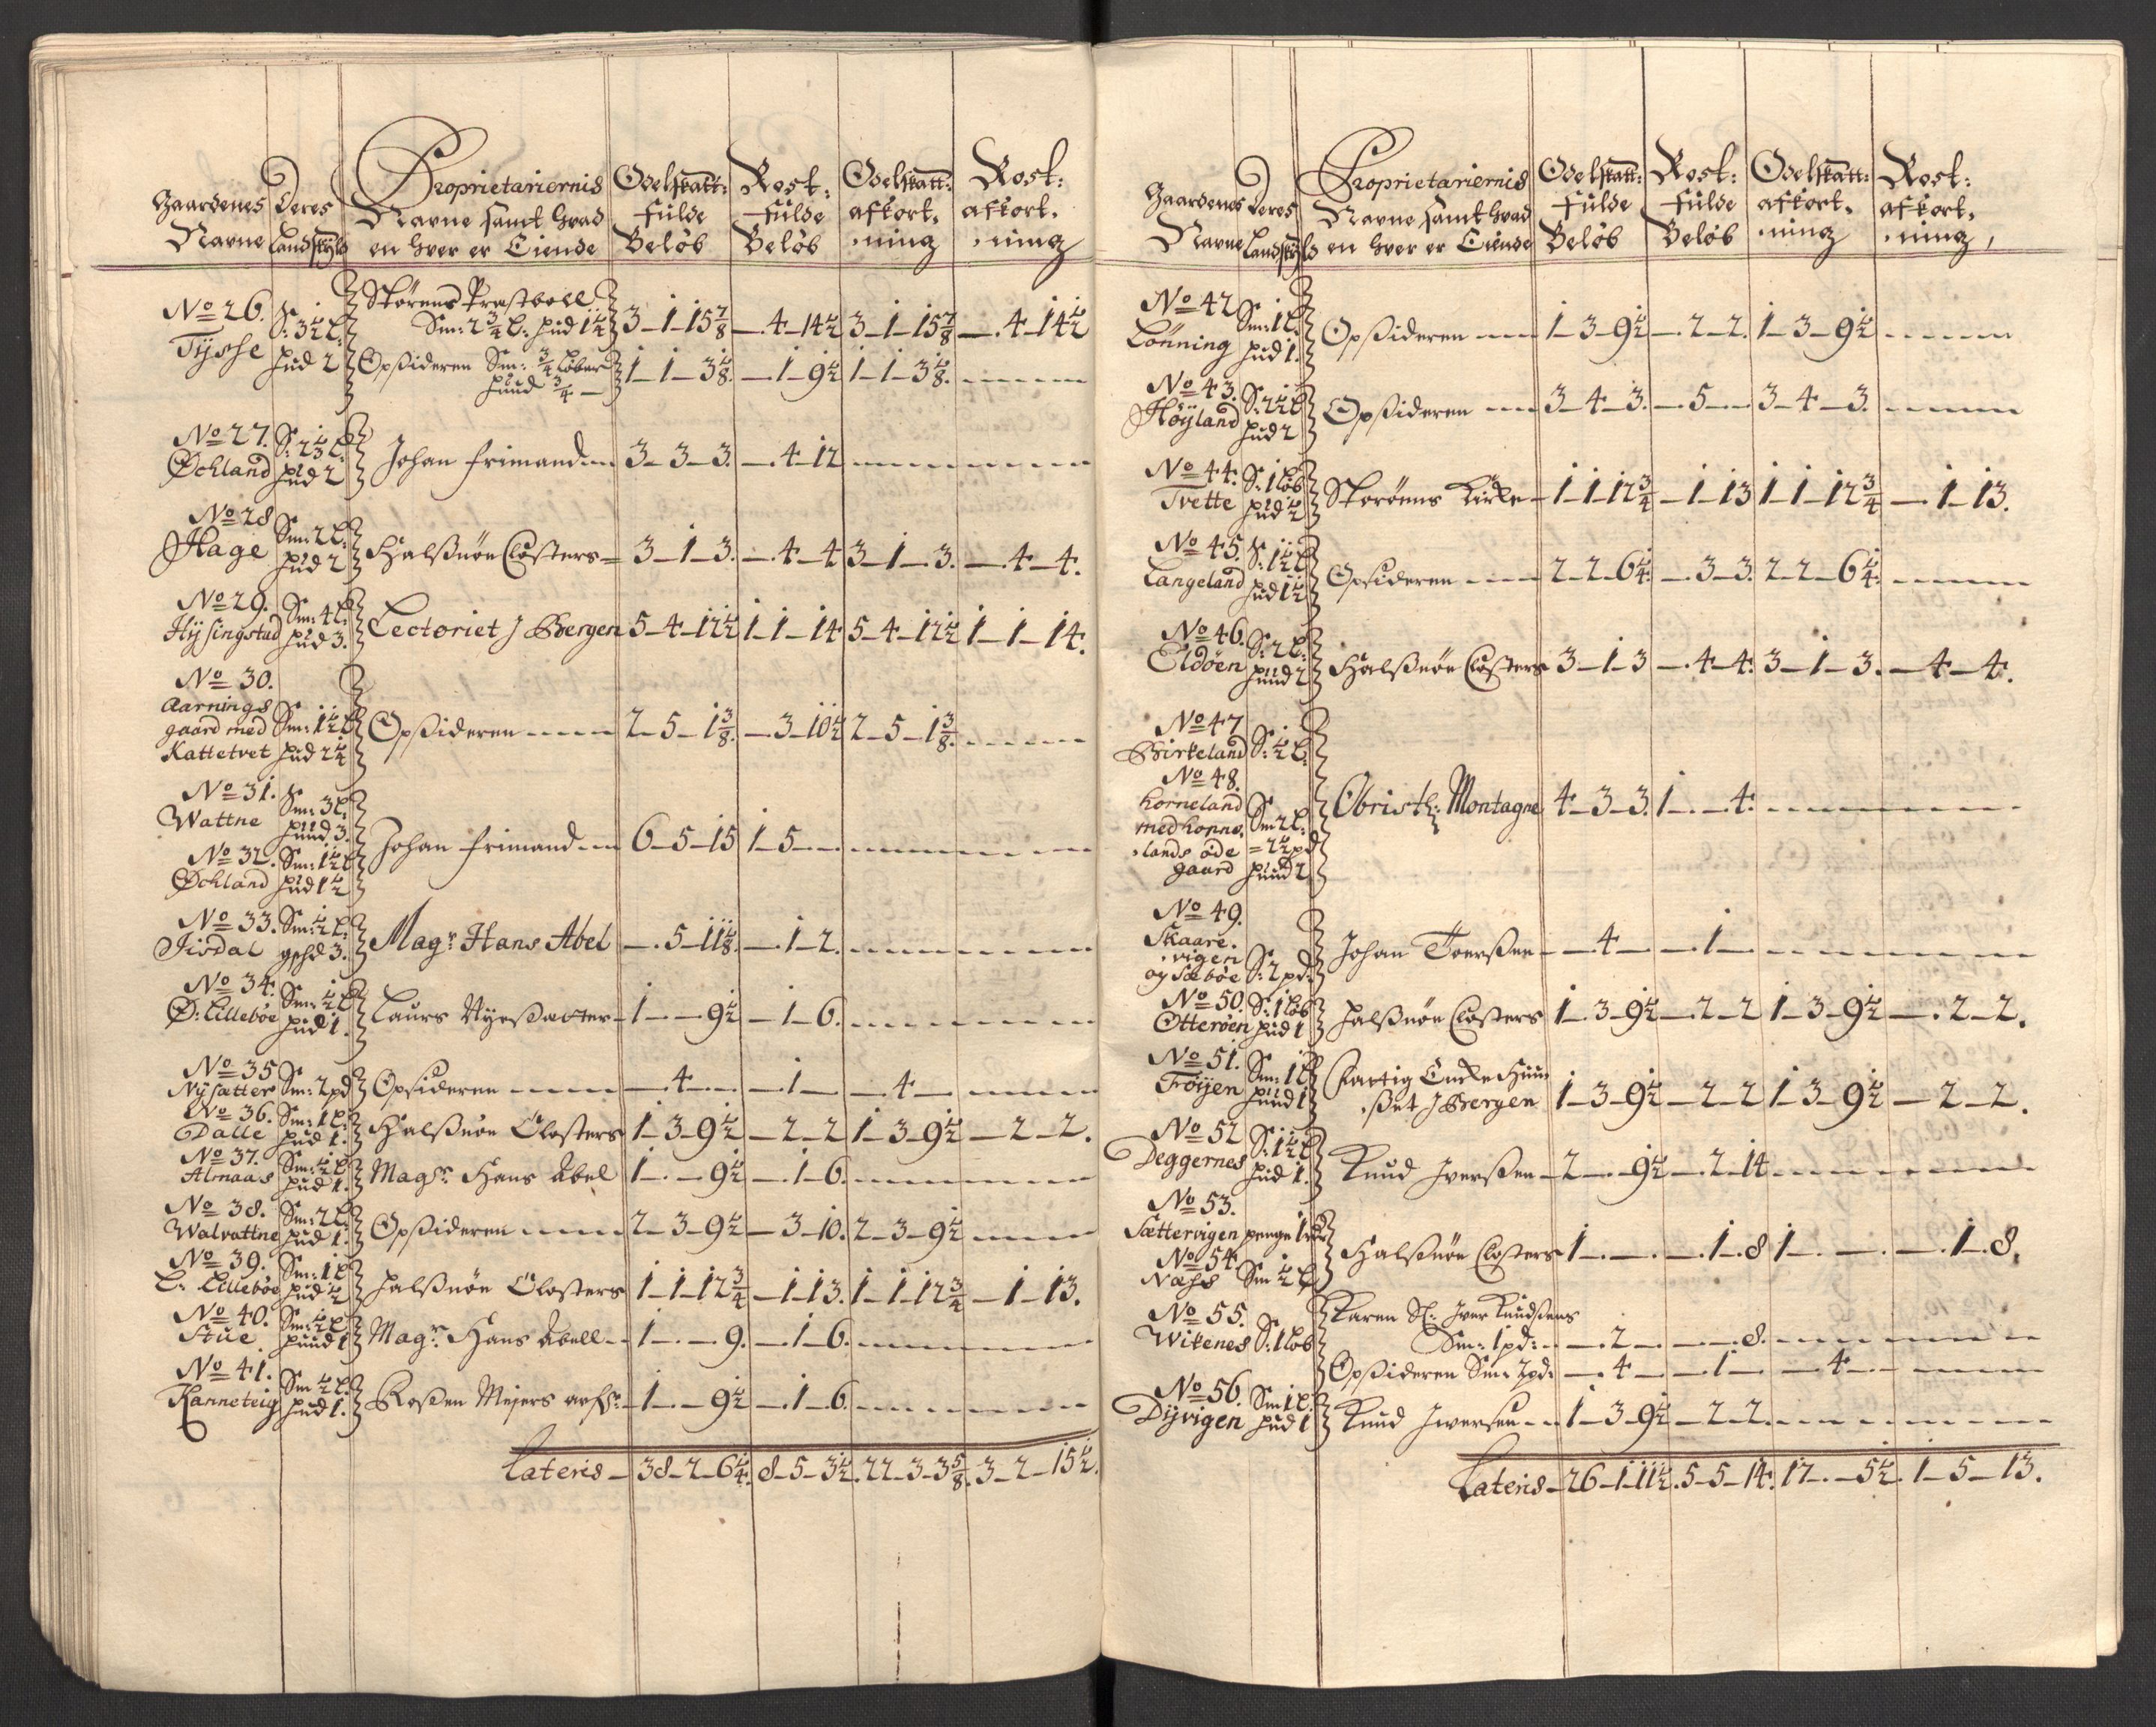 Gaardenes Navne | Deres Landskyld | Proprietariernis Navne samt hvad en hver er Eiende | Odelskatt: fulde Beløb | Rost: fulde Beløb | Odelskatt: afkort,ning | Rost: afkort,ning
No 26. Tysse | S: 3½ L: hud 2 | Størens Præstboll Sm: 2¾ L: hud 1¼ | 3_1_15⅞ | _.4_14½ | 3_1_15⅞ | _.4_14½
Opsideren Sm: ¾ Løber huud ¾ | 1_1_3⅛. | _1_9½ | 1_1_3⅛.
No 27. Øchland | hud 2 | Johan frimand | 3_3_3. | _.4_12
No 28 Hage | Sm: 2 L: hud 2 | Halsnøe Closters | 3_1_3. | _.4_4 | 3_1_3. | _.4_4.
No 29. Hysingstad | Sm: 4 L: hud 3. | Lectoriet J Bergen | 5_4_12½ | 1_1_14 | 5_4_12½ | 1_1_14.
No 30. Aarnings gaard med Kattetvet | Sm: 1½ L hud 2¼ | Opsideren | 2_5_1⅜. | _3_10½ | 2_5_1⅜.
No 31. Wattne | Sm: 3 L: huud 3.
No 32. Øchland | Sm: 1½ L hud 1½ | Johan frimand | 6_5_15 | 1_5
No 33. Jisdal | Sm: ½ L: gshd 3. | Magr Hans Abel | _.5_11⅛. | _.1_2.
No 34. Ø: Lillebøe | Sm: ½ L hud 1. | Laurs | 1_._9½ | _1_6.
No 35 Nysætter | Sm: 2 pd | Opsideren | _.4_ | _.1_ | _4_
No 36. Dalle | Sm: 1 L: hud 1. | Halsnøe Closters | 1_3_9½ | _2_2 | 1_3_9½ | _2_2.
No 37. Almaas | Sm: ½ L hud 1. | Magr Hans Abel | 1_._9½ | _.1_6.
No 38. Walvattne | Sm: 2 L: hud 1. | Opsideren | 2_3_9½ | _3_10. | 2_3_9½
No 39. L: Lillebøe | Sm: 1 L hud ½ | Halsnøe Closters | 1_1_12¾ | _1_13. | 1_1_12¾ | _1_13.
No 40. Stue | Sm: ½ L huud 1 | Magr Hans Abell | 1_._9. | _1_6.
No 41. Kanneteig | Sm ½ L. hud 1. | Rosen Mejers | 1_._9½ | _.1_6.
Lateris | 38_2_6¼. | 8_5_3½. | 22_3_3⅝. | 3_2_15½.
Gaardenes Navne | Deres Landskyld | Proprietariernis Navne samt hvad en hver er Eiende | Odelskatt: fulde Beløb | Rost: fulde Beløb | Odelskatt: afkort,ning | Rost: afkort,ning,
No 42 Lønning | Sm: 1 L: hud 1. | Opsideren | 1_3_9½ | _.2_2. | 1_3_9½
No 43. Høyland | S: 2½ L hud 2 | Opsideren | 3_4_3. | _.5_ | 3_4_3.
No 44. Tvette | S: 1 Løb hud ½ | Storøens Kirke | 1_1_12¾ | _1_13 | 1_1_12¾ | _.1_13.
No 45. Langeland | S: 1½ L hud 1½ | Opsideren | 2_2_6¼. | _.3_3. | 2_2_6¼.
No 46. Eldøen | S: 2 L: huud 2 | Halsnøe Closters | 3_1_3 | _.4_4. | 3_1_3. | _4_4.
No 47 Birkeland | S: ½ L:
No 48. horneland med horne,lands øde gaard | Sm 2 L: = 2½ pd huud 2. | Obristl: Montagne | 4_3_3. | 1_._4.
No 49. Skaare,vigen og Sæbøe | S: 2 pd: | Johan Toersen | _4_ | _.1_
No 50. Otterøen | S: 1 Løb hud 1 | Halsnøe Closters | 1_3_9½ | _.2_2 | 1_3_9½ | _.2_2.
No 51. Trøyen | Sm: 1 L huud 1 | Fattig Enke Huu,set J Bergen | 1_3_9½ | _2_2 | 1_3_9½ | _2_2.
No 52 Deggernes | S: 1½ L hud 1. | Knud Iversen | 2_._9½ | _.2_14
No 53. Sættervigen | penge 1 rdr
No 54. Næss | Sm ½ L | Halsnøe Closters | 1_._. | _.1_8 | 1_._. | _.1_8.
No 55. Witenes | S: 1 Løb | Karen Sl: Iver Knudsens Sm: 1 pd: | _.2_ | _._8.
Opsideren Sm: 2 pd: | _.4_ | _1_ | _4_
No 56. Dyvigen | Sm 1 L: hud 1 | Knud Iwersen | 1_3_9½ | _2_2.
Lateris | 26_1_11½. | 5_5_14. | 17_._5½. | 1_5_13.